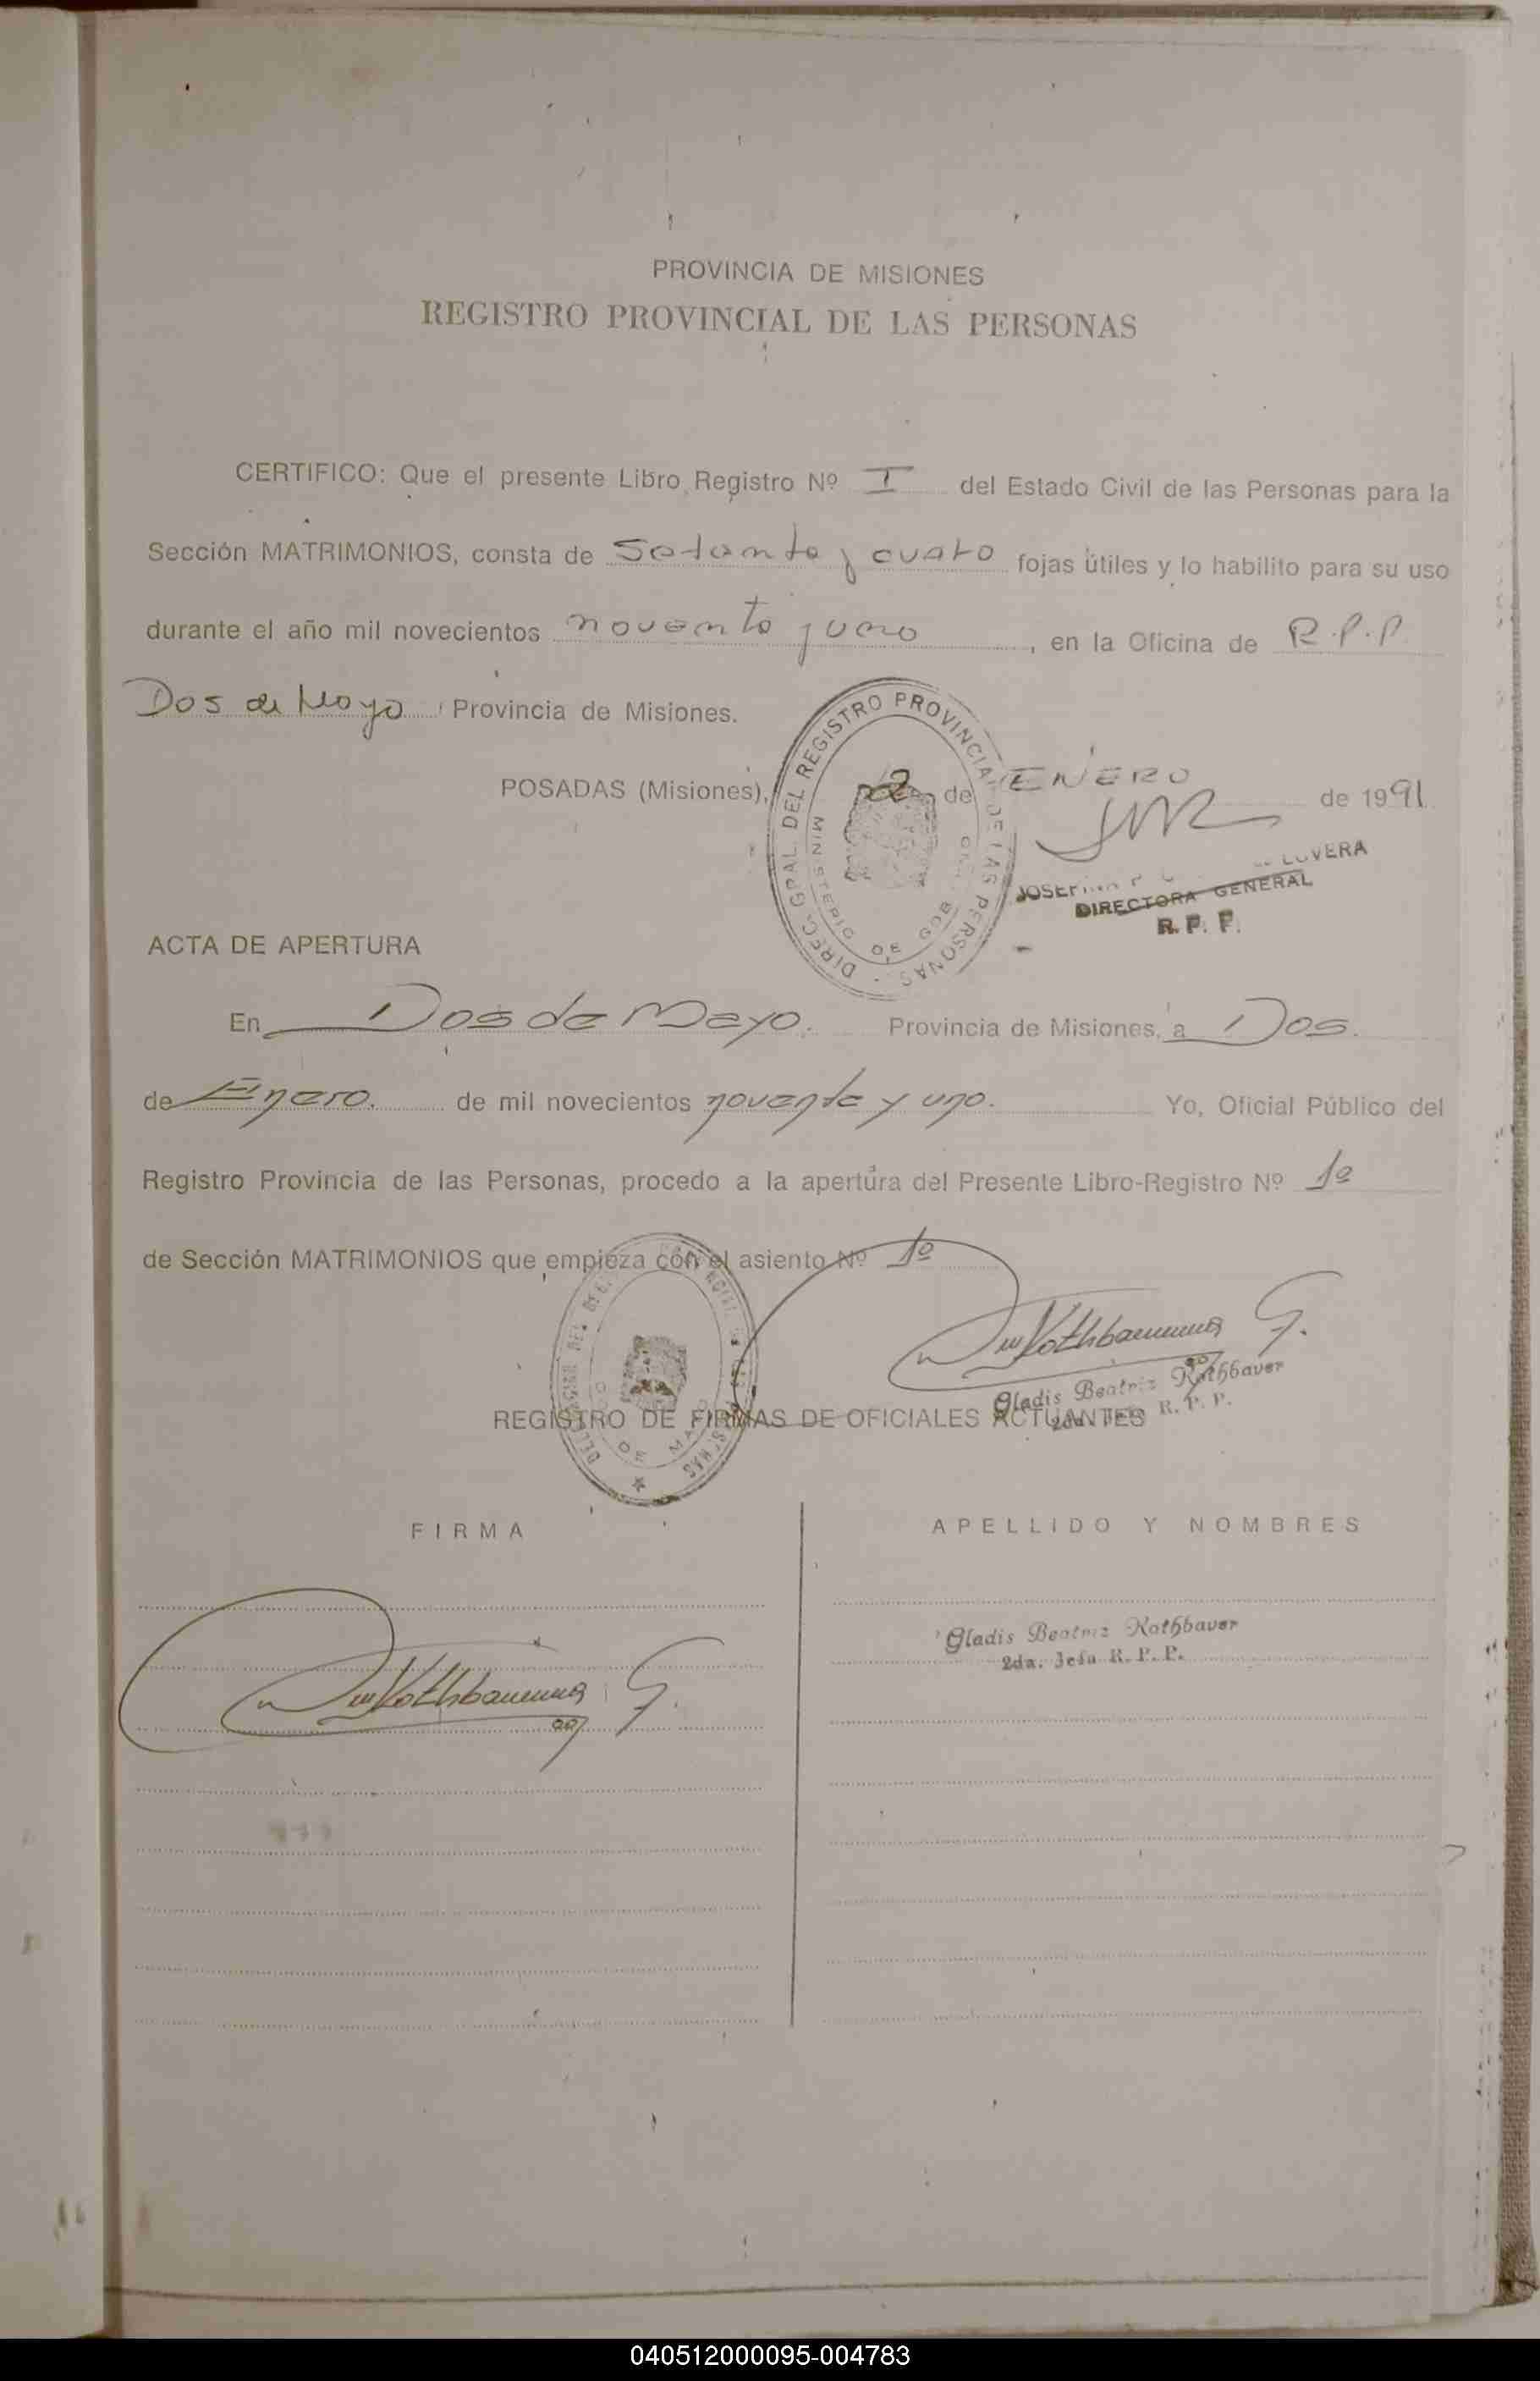 PROVINCIA DE MISIONES
REGISTRO PROVINCIAL DE LAS PERSONAS
CERTIFICO: Que el presente Libro Registro Nº I del Estado Civil de las Personas para la
Sección MATRIMONIOS, consta de Setenta y cuatro fojas útiles y lo habilito para su uso
durante el año mil novecientos noventa y uno, en la Oficina de R.P.P
Dos de Mayo, Provincia de Misiones.
POSADAS (Misiones), 2 de ENERO de 1991
DIREC. GRAL. DEL REGISTRO PROVINCIAL DE LAS PERSONAS
MINISTERIO DE GOB
LOVERA
DIRECTORA GENERAL
R. P. P.
ACTA DE APERTURA
En Dos de Mayo. Provincia de Misiones, a Dos.
de Enero. de mil novecientos noventa y uno. Yo, Oficial Público del
Registro Provincia de las Personas, procedo a la apertura del Presente Libro-Registro Nº 1º
de Sección MATRIMONIOS que empieza con el asiento Nº 1º
Rothbauer G.
Gladis Beatriz Rothbauer
2da. Jefa R. P. P.
REGISTRO DE FIRMAS DE OFICIALES ACTUANTES
FIRMA APELLIDO Y NOMBRES
Rothbauer G.
Gladis Beatriz Rothbauer
2da. Jefa R. P. P.
040512000095-004783